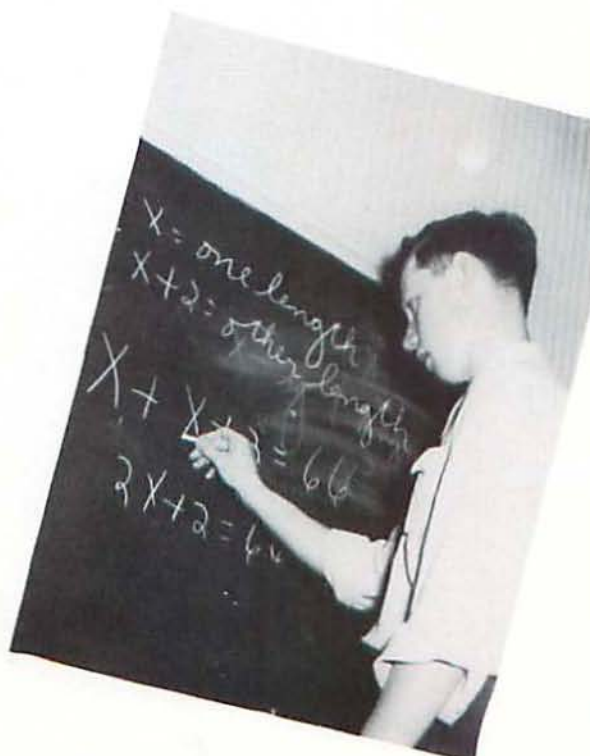 X = one length
X+2 = other length
X + X+2 = 66
2X+2 = 66